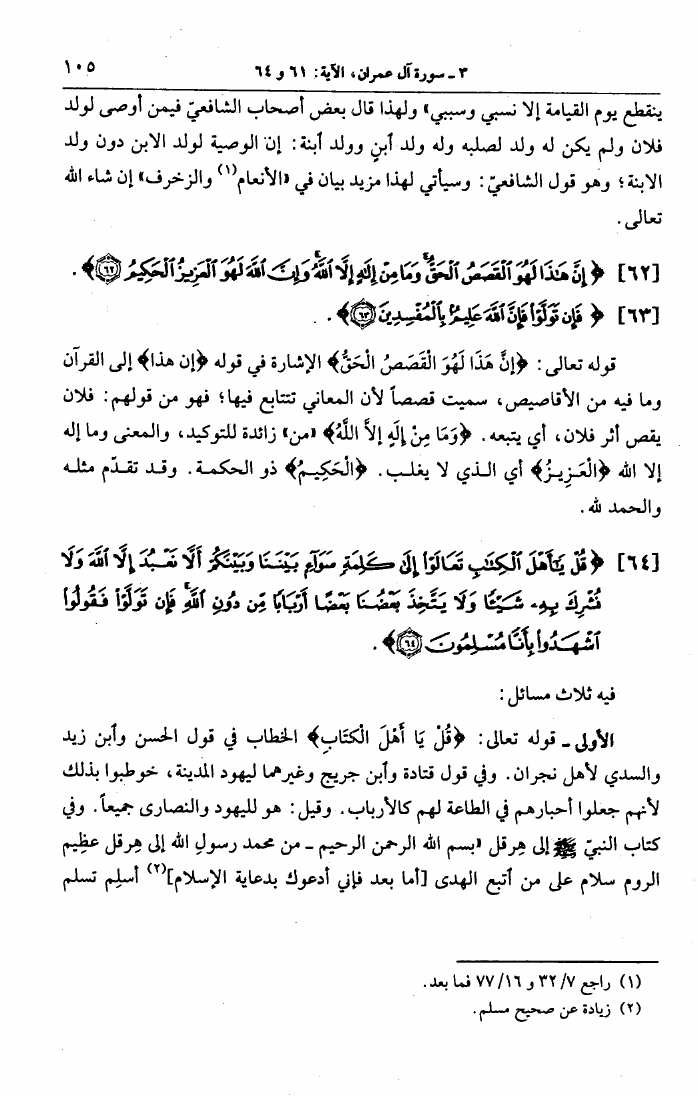 ٣ - سورة آل عمران، الآية: ٦١ و ٦٤
١٠٥
ينقطع يوم القيامة إلا نسبي وسببي» ولهذا قال بعض أصحاب الشافعيّ فيمن أوصى لولد
فلان ولم يكن له ولد لصلبه وله ولد أبنٍ وولد أبنة: إن الوصية لولد الابن دون ولد
الابنة؛ وهو قول الشافعيّ: وسيأتي لهذا مزيد بيان في «الأنعام(١) والزخرف» إن شاء الله
تعالى.
[٦٢] ﴿ إِنَّ هَٰذَا لَهُوَ ٱلْقَصَصُ ٱلْحَقُّ وَمَا مِنْ إِلَٰهٍ إِلَّا ٱللَّهُ وَإِنَّ ٱللَّهَ لَهُوَ ٱلْعَزِيزُ ٱلْحَكِيمُ ٦٢﴾ .
[٦٣] ﴿ فَإِن تَوَلَّوْا۟ فَإِنَّ ٱللَّهَ عَلِيمٌۢ بِٱلْمُفْسِدِينَ ٦٣﴾ .
قوله تعالى: ﴿إِنَّ هَذَا لَهُوَ الْقَصَصُ الْحَقُّ﴾ الإشارة في قوله ﴿إن هذا﴾ إلى القرآن
وما فيه من الأقاصيص، سميت قصصاً لأن المعاني تتتابع فيها؛ فهو من قولهم: فلان
يقص أثر فلان، أي يتبعه. ﴿وَمَا مِنْ إِلَهٍ إِلاَّ اللَّهُ﴾ «من» زائدة للتوكيد، والمعنى وما إله
إلا الله ﴿الْعَزِيزُ﴾ أي الذي لا يغلب. ﴿الْحَكِيمُ﴾ ذو الحكمة. وقد تقدّم مثله
والحمد لله.
[٦٤] ﴿ قُلْ يَٰٓأَهْلَ ٱلْكِتَٰبِ تَعَالَوْا۟ إِلَىٰ كَلِمَةٍ سَوَآءٍۭ بَيْنَنَا وَبَيْنَكُمْ أَلَّا نَعْبُدَ إِلَّا ٱللَّهَ وَلَا
نُشْرِكَ بِهِۦ شَيْـًٔا وَلَا يَتَّخِذَ بَعْضُنَا بَعْضًا أَرْبَابًا مِّن دُونِ ٱللَّهِ فَإِن تَوَلَّوْا۟ فَقُولُوا۟
ٱشْهَدُوا۟ بِأَنَّا مُسْلِمُونَ ٦٤﴾ .
فيه ثلاث مسائل:
الأولى - قوله تعالى: ﴿قُلْ يَا أَهْلَ الْكِتَابِ﴾ الخطاب في قول الحسن وأبن زيد
والسدي لأهل نجران. وفي قول قتادة وأبن جريج وغيرهما ليهود المدينة، خوطبوا بذلك
لأنهم جعلوا أحبارهم في الطاعة لهم كالأرباب. وقيل: هو لليهود والنصارى جميعاً. وفي
كتاب النبيّ ﷺ إلى هِرقل «بسم الله الرحمن الرحيم - من محمد رسولِ الله إلى هِرقل عظِيم
الروم سلام على من أتبع الهدى [أما بعد فإني أدعوك بدعاية الإسلام](٢) أسلِم تسلم
(١) راجع ٧/ ٣٢ و ١٦/ ٧٧ فما بعد.
(٢) زيادة عن صحيح مسلم.